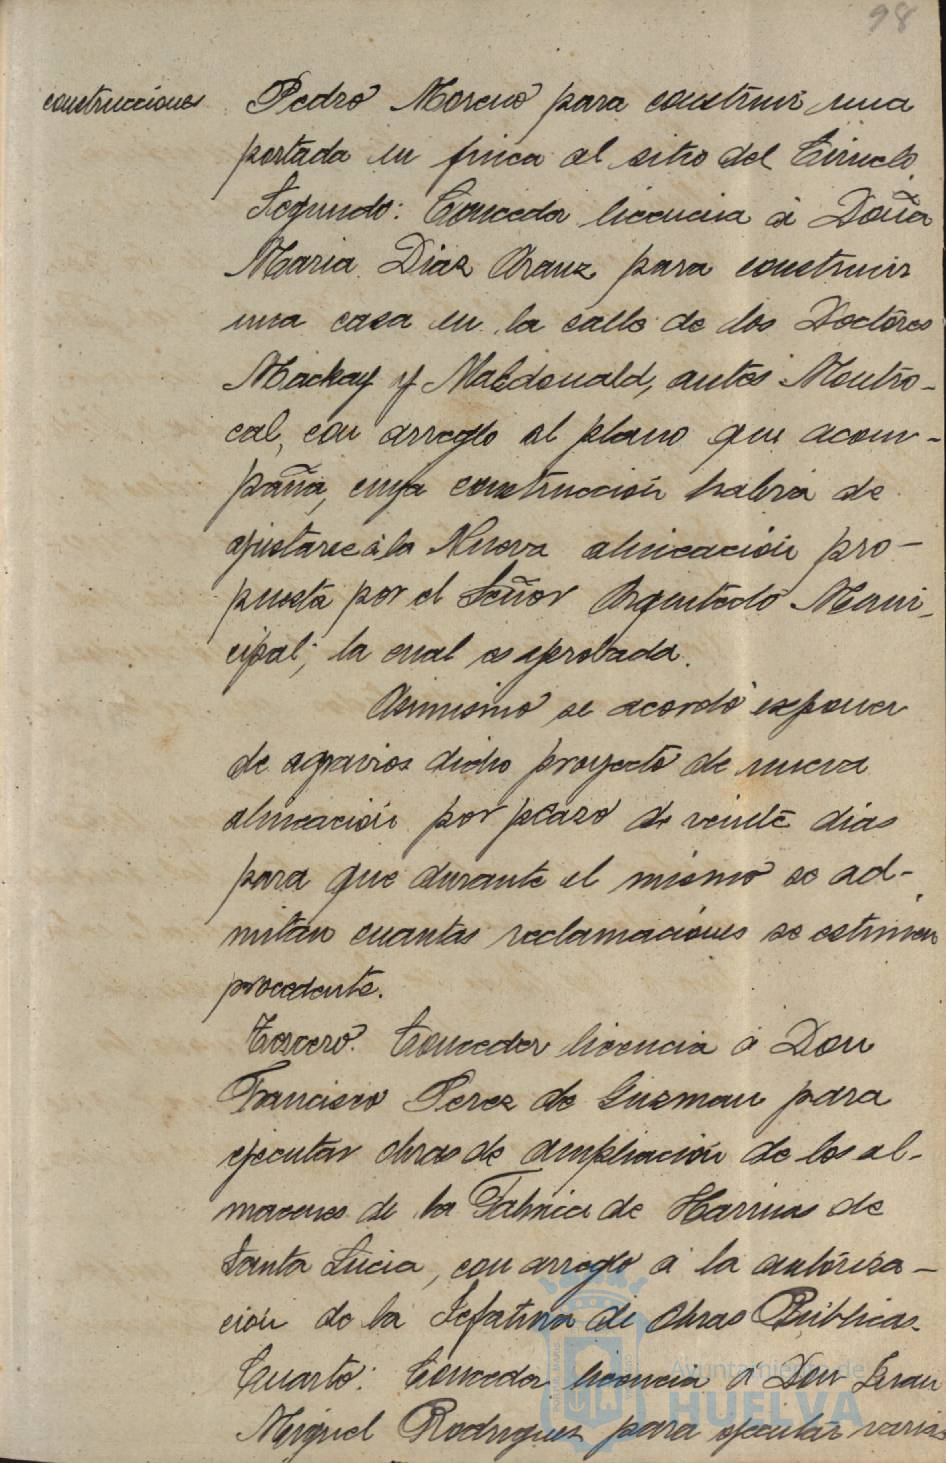 98
construcciones
Pedro Moreno para construir una
portada en finca al sitio del
Segundo: Conceder licencia á Doña
Maria Diaz Arauz para construir
una casa en la calle de los Doctóres
Mackay y Macdonald, antes Montro-
cal, con arreglo al plano que acom-
paña, cuya construcción habrá de
ajustarse á la Nueva alineación pro-
puesta por el Señor Arquitecto Muni-
cipal; la cual es aprobada.
Asimismo se acordó exponer
de agravios dicho proyecto de nueva
alineación por plazo de veinte dias
para que durante el mismo se ad-
mitan cuantas reclamaciones se estimen
procedente.
Tercero. Conceder licencia á Don
Francisco Perez de Guzman para
ejecutar obras de ampliación de los al-
macenes de la Fabrica de Harinas de
Santa Lucia, con arreglo á la autóriza-
ción de la Jefatura de Obras Públicas.
Cuarto: Conceder licencia á Don Juan
Miguel Rodriguez para ejecutar varias
Ayuntamiento de
HUELVA